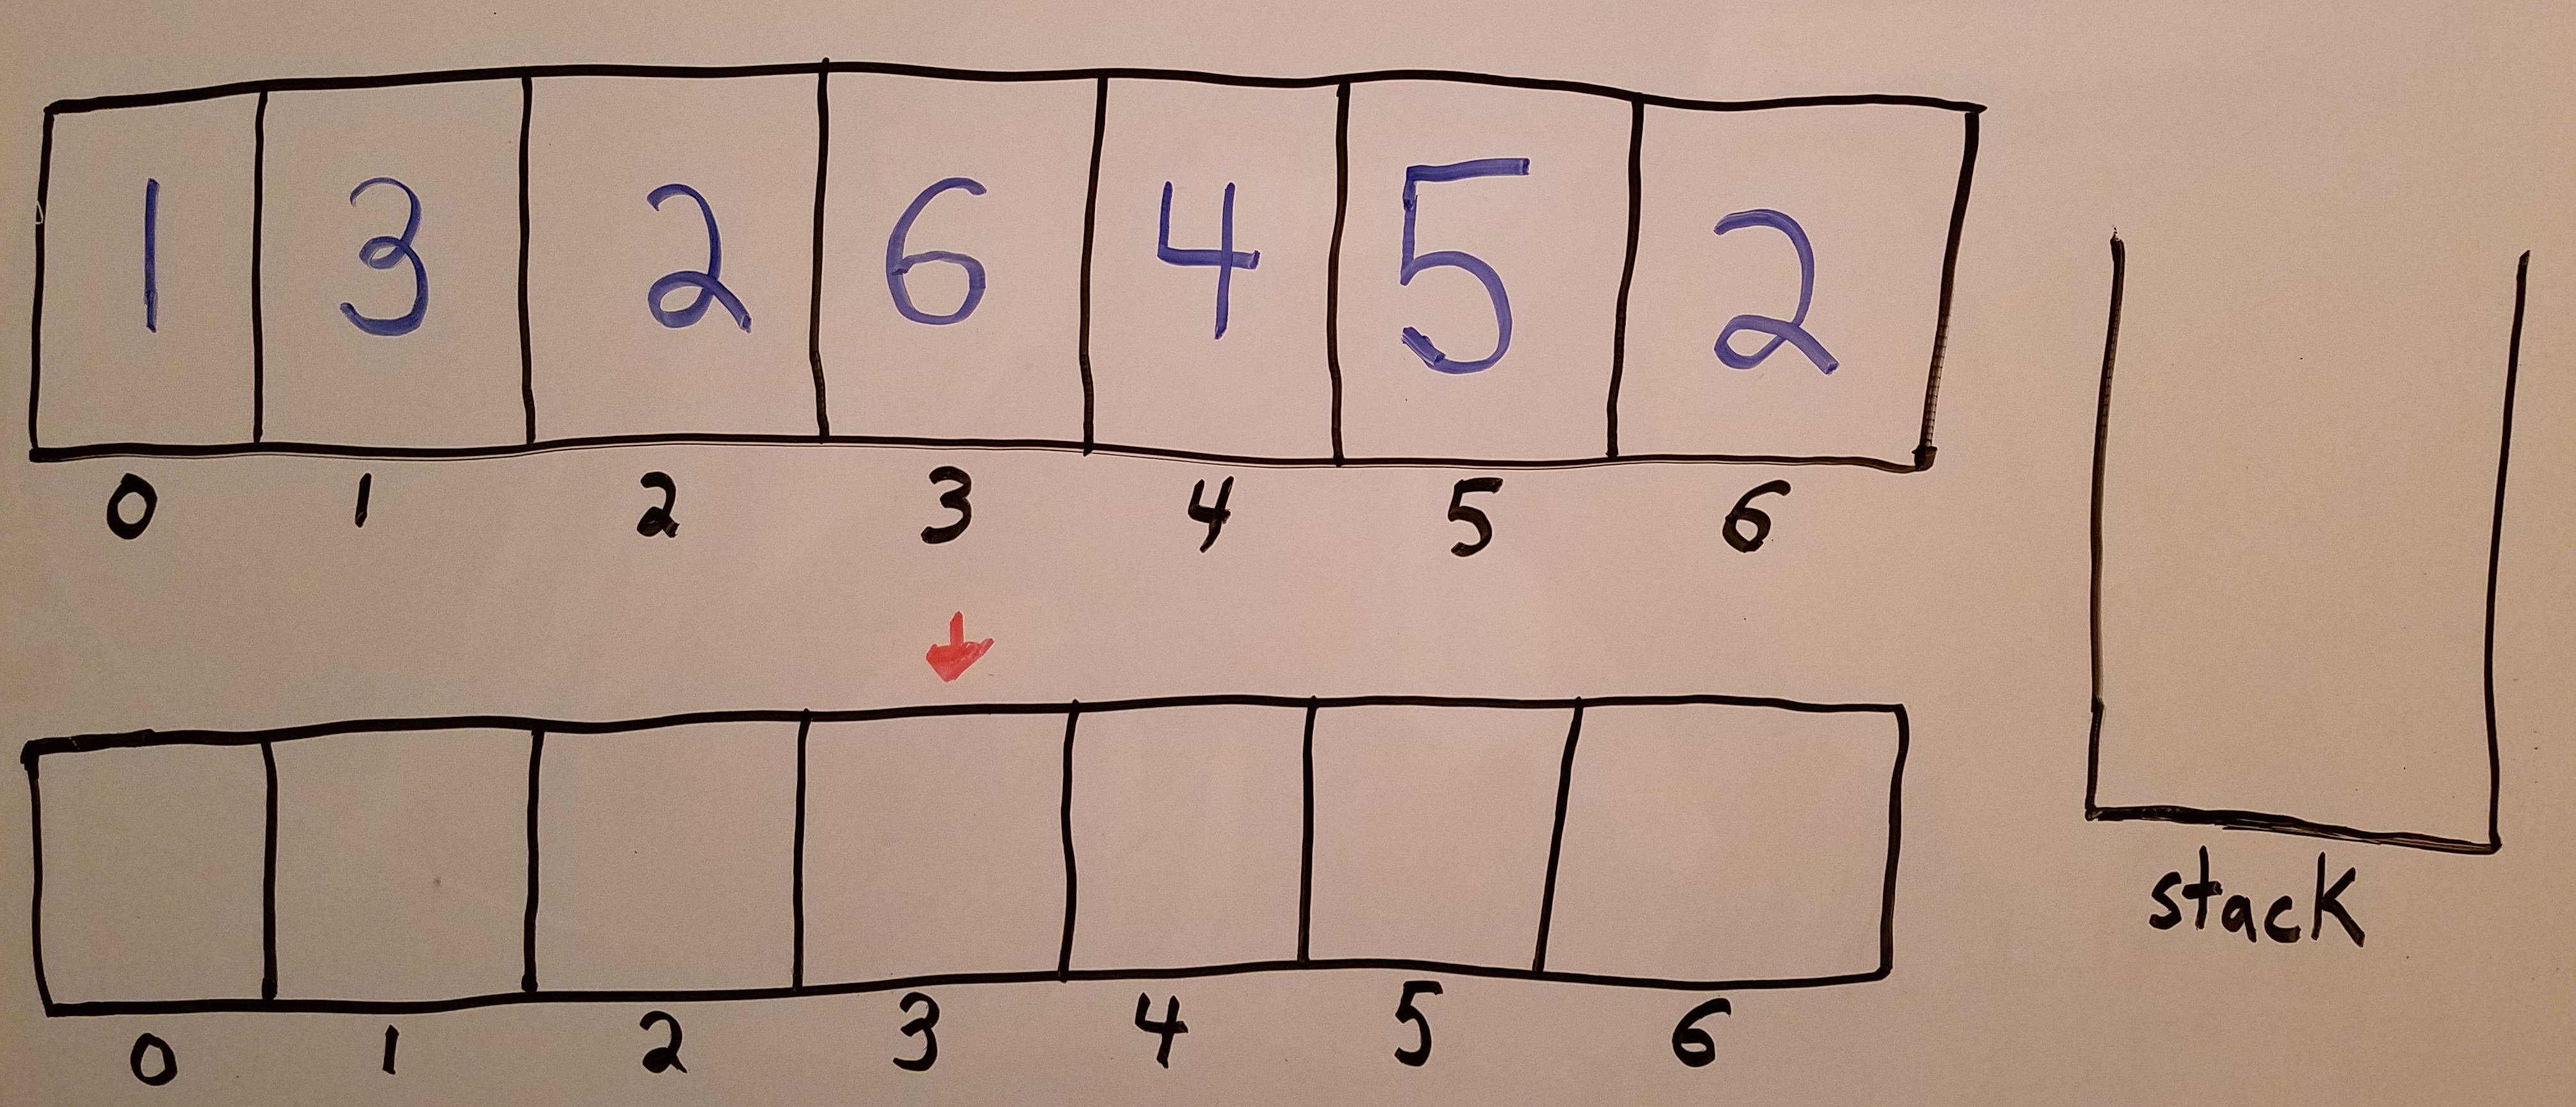 1 3 2 6 4 5 2
0 1 2 3 4 5 6
0 1 2 3 4 5 6
stack